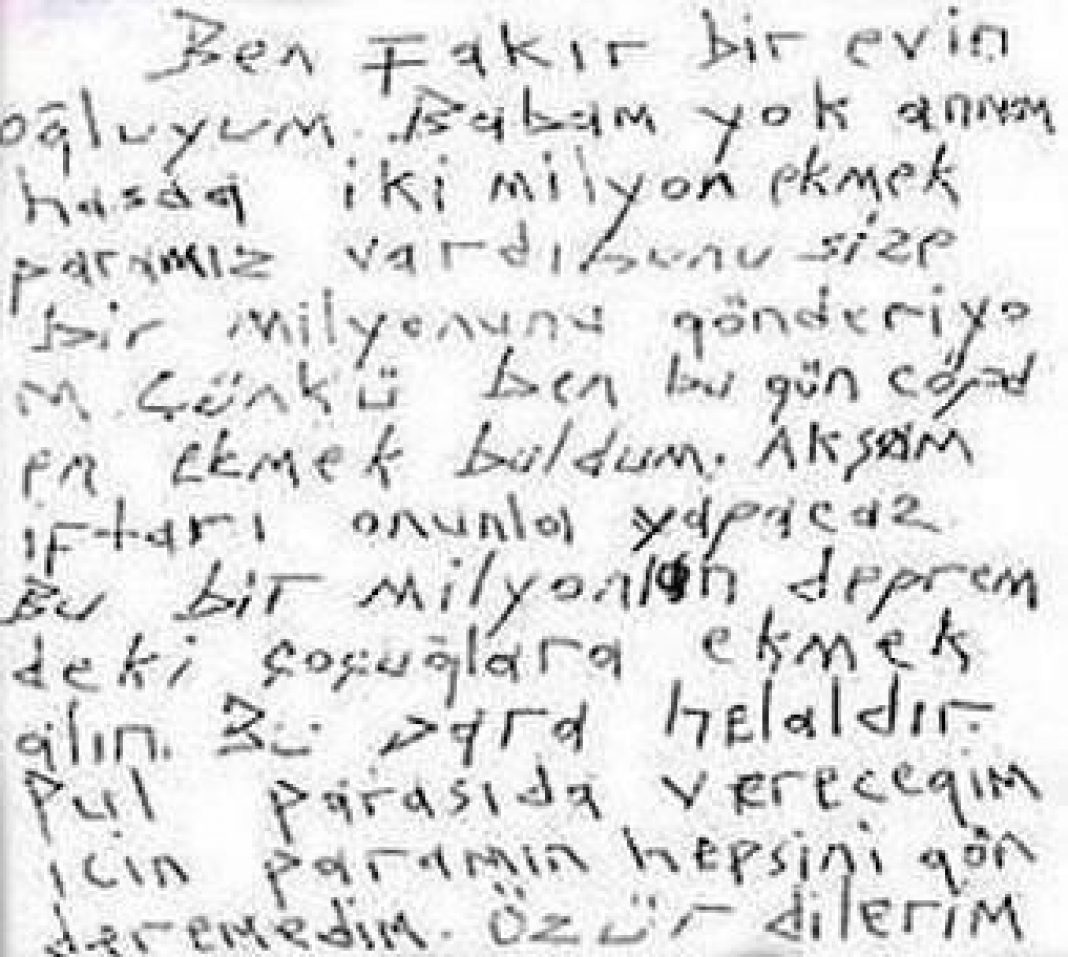 Ben Fakır bir evin
oğluyum. Babam yok annem
hasda iki milyon ekmek
paramız vardı bunu size
bir milyonunu gönderiyo
m. Çünkü ben bu gün cöpd
en ekmek buldum. AKşAM
iftarı onunla yapacaz
Bu bir milyonlan deprem
deki çoşuğlara ekmek
alın. Bu para helaldır.
Pul parasıda verecegim
icin paramın hepsini gön
deremedim. özür dilerim